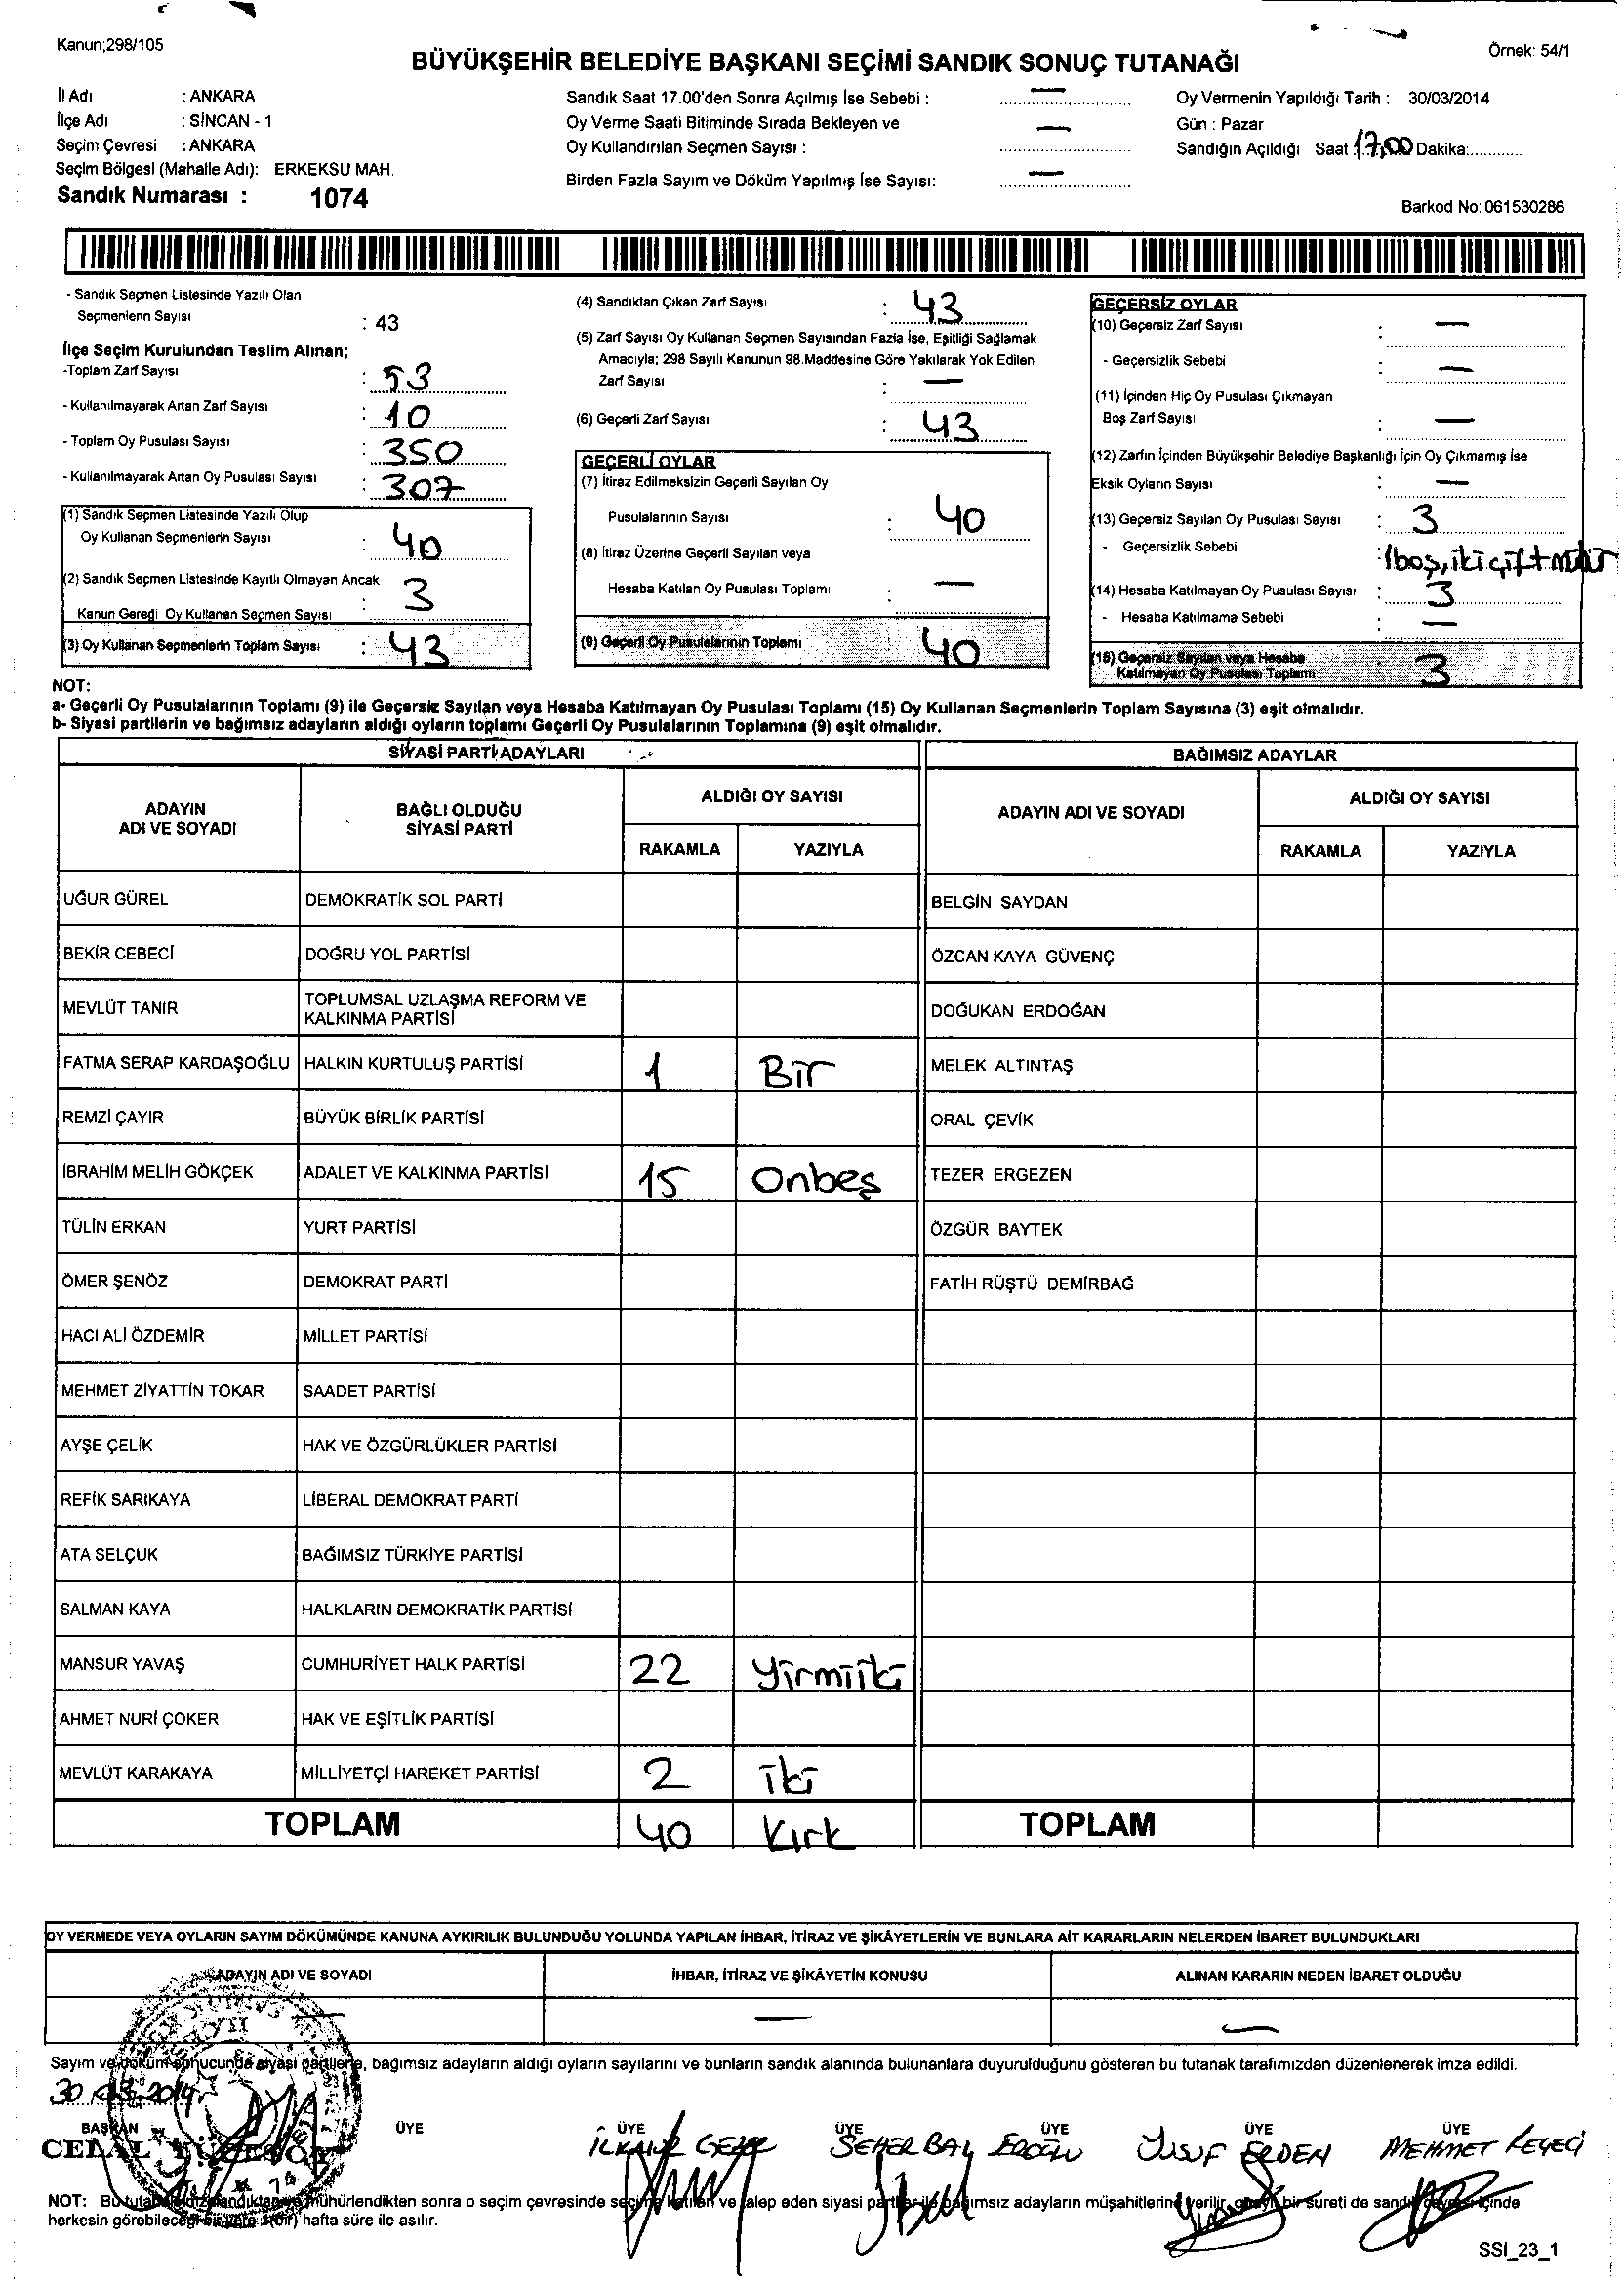 Kanun;298/105
Örnek: 54/1
BÜYÜKŞEHİR BELEDİYE BAŞKANI SEÇİMİ SANDIK SONUÇ TUTANAĞI
İl Adı : ANKARA
İlçe Adı : SİNCAN - 1
Seçim Çevresi : ANKARA
Seçim Bölgesi (Mahalle Adı): ERKEKSU MAH.
Sandık Numarası : 1074
Sandık Saat 17.00'den Sonra Açılmış İse Sebebi : —
Oy Verme Saati Bitiminde Sırada Bekleyen ve
Oy Kullandırılan Seçmen Sayısı : —
Birden Fazla Sayım ve Döküm Yapılmış İse Sayısı: —
Oy Vermenin Yapıldığı Tarih : 30/03/2014
Gün : Pazar
Sandığın Açıldığı Saat : 17,00 Dakika:............
Barkod No: 061530286
- Sandık Seçmen Listesinde Yazılı Olan
Seçmenlerin Sayısı : 43
İlçe Seçim Kurulundan Teslim Alınan;
-Toplam Zarf Sayısı : 53
- Kullanılmayarak Artan Zarf Sayısı : 10
- Toplam Oy Pusulası Sayısı : 350
- Kullanılmayarak Artan Oy Pusulası Sayısı : 307
(1) Sandık Seçmen Listesinde Yazılı Olup
Oy Kullanan Seçmenlerin Sayısı : 40
(2) Sandık Seçmen Listesinde Kayıtlı Olmayan Ancak
Kanun Gereği Oy Kullanan Seçmen Sayısı : 3
(3) Oy Kullanan Seçmenlerin Toplam Sayısı : 43
(4) Sandıktan Çıkan Zarf Sayısı : 43
(5) Zarf Sayısı Oy Kullanan Seçmen Sayısından Fazla İse, Eşitliği Sağlamak
Amacıyla; 298 Sayılı Kanunun 98.Maddesine Göre Yakılarak Yok Edilen
Zarf Sayısı : —
(6) Geçerli Zarf Sayısı : 43
GEÇERLİ OYLAR
(7) İtiraz Edilmeksizin Geçerli Sayılan Oy
Pusulalarının Sayısı : 40
(8) İtiraz Üzerine Geçerli Sayılan veya
Hesaba Katılan Oy Pusulası Toplamı : —
(9) Geçerli Oy Pusulalarının Toplamı 40
GEÇERSİZ OYLAR
(10) Geçersiz Zarf Sayısı : —
- Geçersizlik Sebebi : —
(11) İçinden Hiç Oy Pusulası Çıkmayan
Boş Zarf Sayısı : —
(12) Zarfın İçinden Büyükşehir Belediye Başkanlığı İçin Oy Çıkmamış İse
Eksik Oyların Sayısı : —
(13) Geçersiz Sayılan Oy Pusulası Sayısı : 3
- Geçersizlik Sebebi : 1boş, iki çift mühür
(14) Hesaba Katılmayan Oy Pusulası Sayısı : 3
- Hesaba Katılmama Sebebi —
(15) Geçersiz Sayılan veya Hesaba
Katılmayan Oy Pusulası Toplamı 3
NOT:
a- Geçerli Oy Pusulalarının Toplamı (9) ile Geçersiz Sayılan veya Hesaba Katılmayan Oy Pusulası Toplamı (15) Oy Kullanan Seçmenlerin Toplam Sayısına (3) eşit olmalıdır.
b- Siyasi partilerin ve bağımsız adayların aldığı oyların toplamı Geçerli Oy Pusulalarının Toplamına (9) eşit olmalıdır.
SİYASİ PARTİ ADAYLARI
BAĞIMSIZ ADAYLAR
ADAYIN
ADI VE SOYADI
BAĞLI OLDUĞU
SİYASİ PARTİ
ALDIĞI OY SAYISI
RAKAMLA YAZIYLA
ADAYIN ADI VE SOYADI
ALDIĞI OY SAYISI
RAKAMLA YAZIYLA
UĞUR GÜREL DEMOKRATİK SOL PARTİ BELGİN SAYDAN
BEKİR CEBECİ DOĞRU YOL PARTİSİ ÖZCAN KAYA GÜVENÇ
MEVLÜT TANIR TOPLUMSAL UZLAŞMA REFORM VE
KALKINMA PARTİSİ DOĞUKAN ERDOĞAN
FATMA SERAP KARDAŞOĞLU HALKIN KURTULUŞ PARTİSİ 1 Bir MELEK ALTINTAŞ
REMZİ ÇAYIR BÜYÜK BİRLİK PARTİSİ ORAL ÇEVİK
İBRAHİM MELİH GÖKÇEK ADALET VE KALKINMA PARTİSİ 15 Onbeş TEZER ERGEZEN
TÜLİN ERKAN YURT PARTİSİ ÖZGÜR BAYTEK
ÖMER ŞENÖZ DEMOKRAT PARTİ FATİH RÜŞTÜ DEMİRBAĞ
HACI ALİ ÖZDEMİR MİLLET PARTİSİ
MEHMET ZİYATTİN TOKAR SAADET PARTİSİ
AYŞE ÇELİK HAK VE ÖZGÜRLÜKLER PARTİSİ
REFİK SARIKAYA LİBERAL DEMOKRAT PARTİ
ATA SELÇUK BAĞIMSIZ TÜRKİYE PARTİSİ
SALMAN KAYA HALKLARIN DEMOKRATİK PARTİSİ
MANSUR YAVAŞ CUMHURİYET HALK PARTİSİ 22 Yirmiiki
AHMET NURİ ÇOKER HAK VE EŞİTLİK PARTİSİ
MEVLÜT KARAKAYA MİLLİYETÇİ HAREKET PARTİSİ 2 iki
TOPLAM 40 Kırk TOPLAM
OY VERMEDE VEYA OYLARIN SAYIM DÖKÜMÜNDE KANUNA AYKIRILIK BULUNDUĞU YOLUNDA YAPILAN İHBAR, İTİRAZ VE ŞİKÂYETLERİN VE BUNLARA AİT KARARLARIN NELERDEN İBARET BULUNDUKLARI
ADAYIN ADI VE SOYADI İHBAR, İTİRAZ VE ŞİKÂYETİN KONUSU ALINAN KARARIN NEDEN İBARET OLDUĞU
— — —
Sayım ve döküm sonucunda siyasi partilerle, bağımsız adayların aldığı oyların sayılarını ve bunların sandık alanında bulunanlara duyurulduğunu gösteren bu tutanak tarafımızdan düzenlenerek imza edildi.
30.03.2014
BAŞKAN ÜYE ÜYE ÜYE ÜYE ÜYE ÜYE
CELAL SEHER BAY YUSUF ERDEN MEHMET
NOT: Bu tutanak mühürlendikten sonra o seçim çevresinde seçime katılan ve talep eden siyasi partiler ile bağımsız adayların müşahitlerine verilir, onaylı bir sureti de sandık çevresi içinde
herkesin görebileceği bir yere 1(bir) hafta süre ile asılır.
SSI_23_1